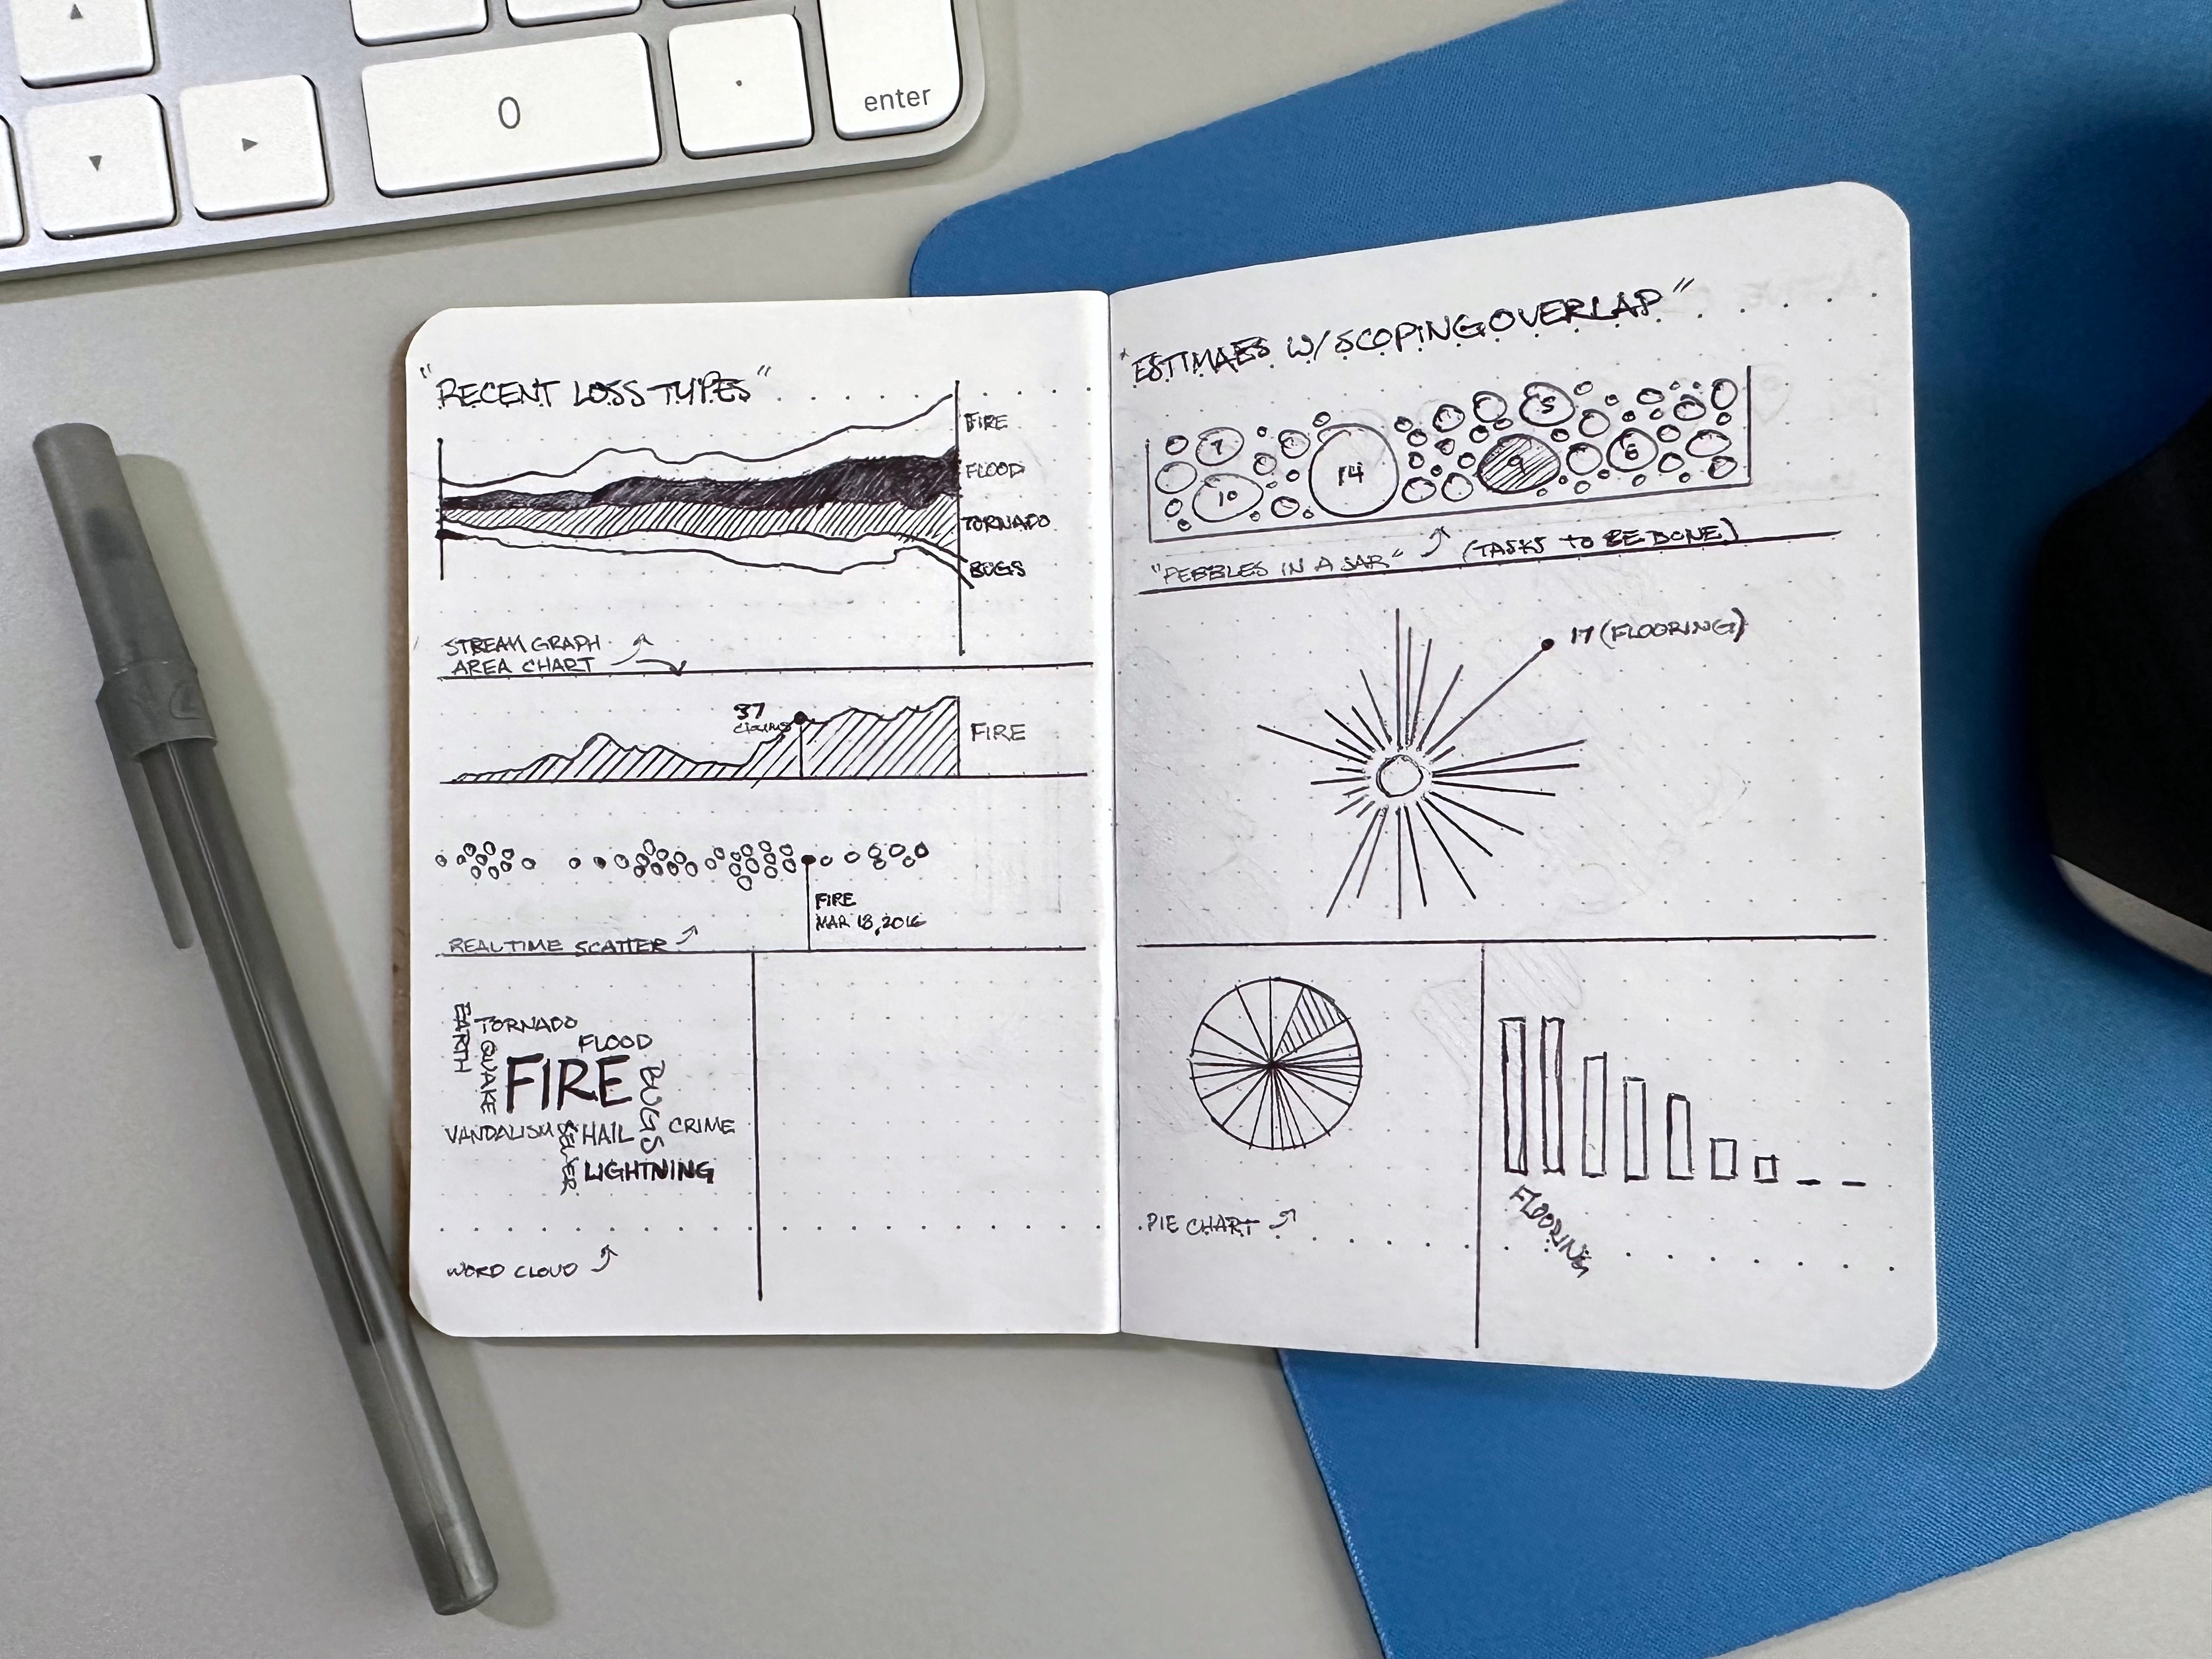 0
.
enter
"RECENT LOSS TYPES"
FIRE
FLOOD
TORNADO
BUGS
STREAM GRAPH
AREA CHART
37
claims
FIRE
FIRE
MAR 18, 2016
REALTIME SCATTER
EARTH
QUAKE
TORNADO
FLOOD
FIRE
BUGS
VANDALISM
SEWER
HAIL
CRIME
LIGHTNING
WORD CLOUD
"ESTIMAES W/ SCOPING OVERLAP"
7
10
14
5
9
6
"PEBBLES IN A JAR" (TASKS TO BE DONE)
17 (FLOORING)
PIE CHART
FLOORING